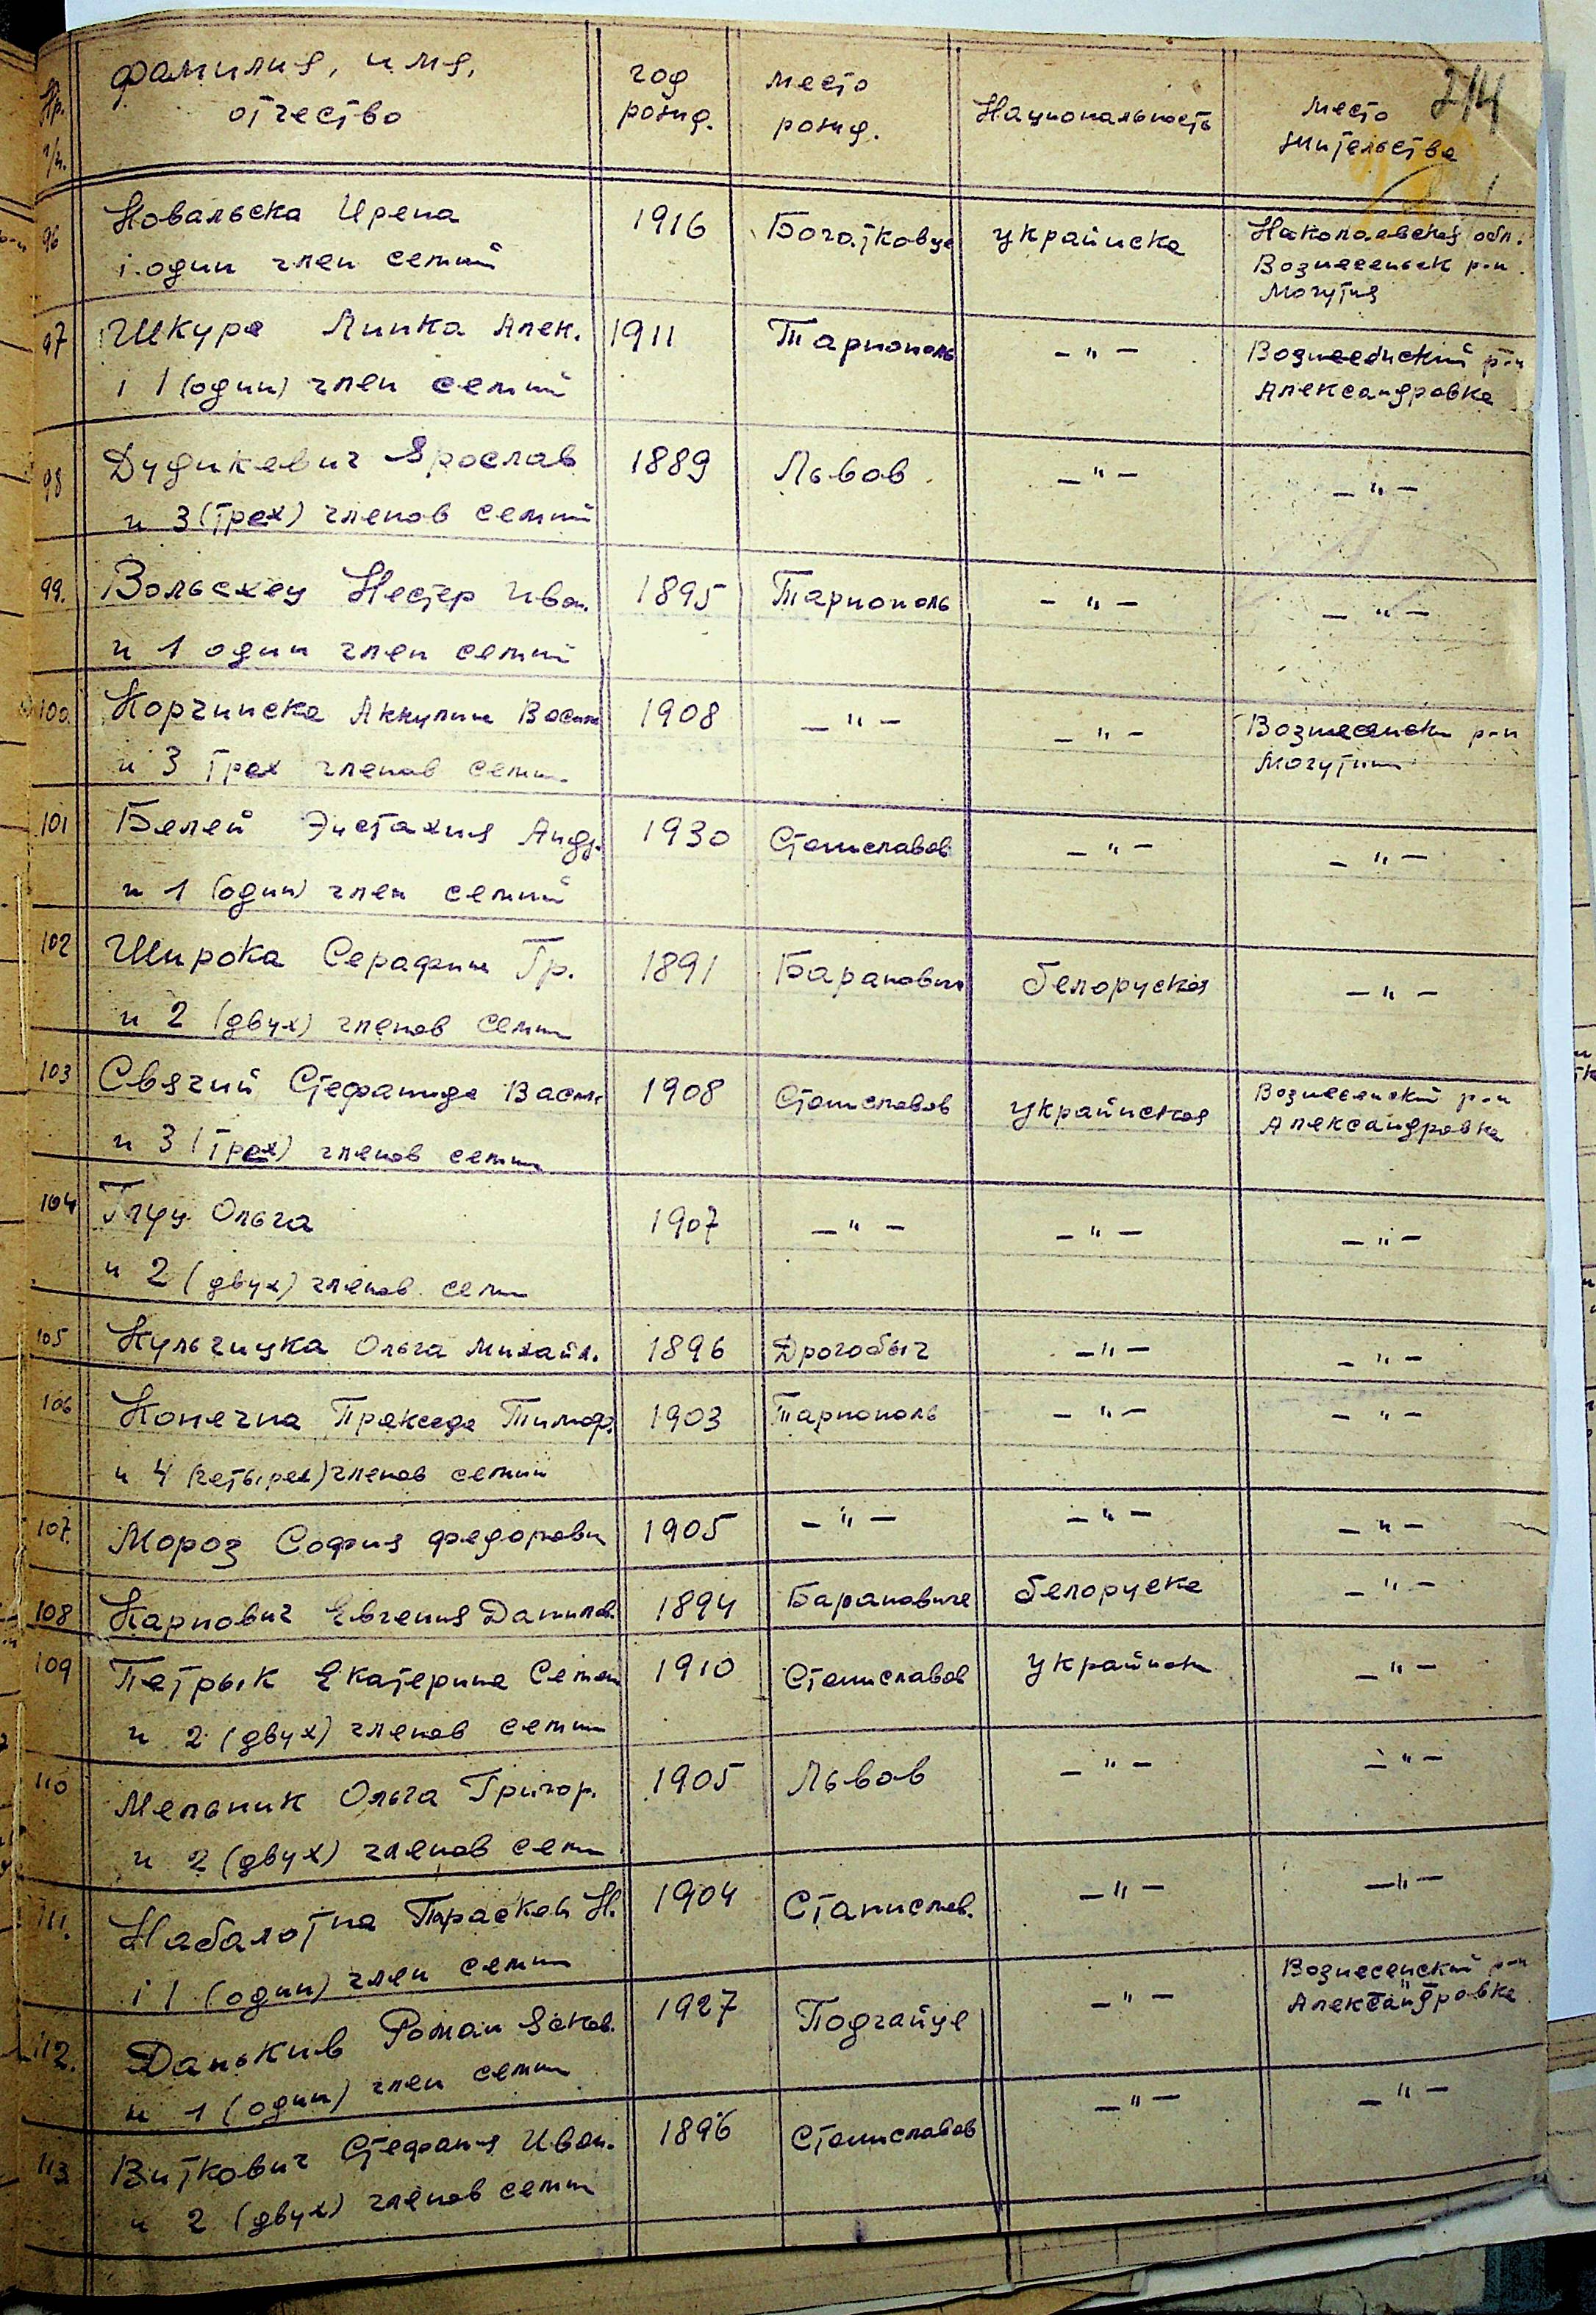 214
Нр. п/п. фамилия, имя, отчество год рожд. место рожд. Национальность место жительства
96 Ковальска Ирена 1916 Богатковце украинска Николаевская обл.
і один член семии Вознесенск р-н
Могутня
97 Шкура Линка Алек. 1911 Тарнополь —"— Вознесенский р-н
і 1 (один) член семии Александровка
98 Дудикевич Ярослав 1889 Львов —"— —"—
и 3 (трех) членов семии
99. Нестер Иван. 1895 Тарнополь —"— —"—
и 1 один член семии
100. Корчинска Аккулина Васил 1908 —"— —"— р-н
и 3 трех членов семии
101 Белей Эустахия Андр. 1930 Станиславов —"— —"—
и 1 (один) член семии
102 Широка Серафина Гр. 1891 Барановичи белоруская —"—
и 2 (двух) членов семии
103 Свячий Стефанида Васил. 1908 Станиславов украинская Вознесенский р-н
и 3 (трех) членов семии Александровка
104 Глуц Ольга 1907 —"— —"— —"—
и 2 (двух) членов семии
105 Кульчицка Ольга Михайл. 1896 Дрогобыч —"— —"—
106 Конечна Пракседа Тимоф. 1903 Тарнополь —"— —"—
и 4 (четырех) членов семии
107. Мороз София 1905 —"— —"— —"—
108 Карпович Евгения Данилов. 1894 Барановиче белоруска —"—
109 Петрык Екатерина Семен 1910 Станиславов украинск —"—
и 2 (двух) членов семии
110 Мельник Ольга Григор. 1905 Львов —"— —"—
и 2 (двух) членов семии
111. Набалотна Параскев Н. 1904 Станислав. —"— —"—
і 1 (один) член семии
112. Данькив Роман Яков. 1927 Подгайце —"— Вознесенский р-н
и 1 (один) член семии Александровка
113 Виткович Стефания Иван. 1896 Станиславов —"— —"—
и 2 (двух) членов семии